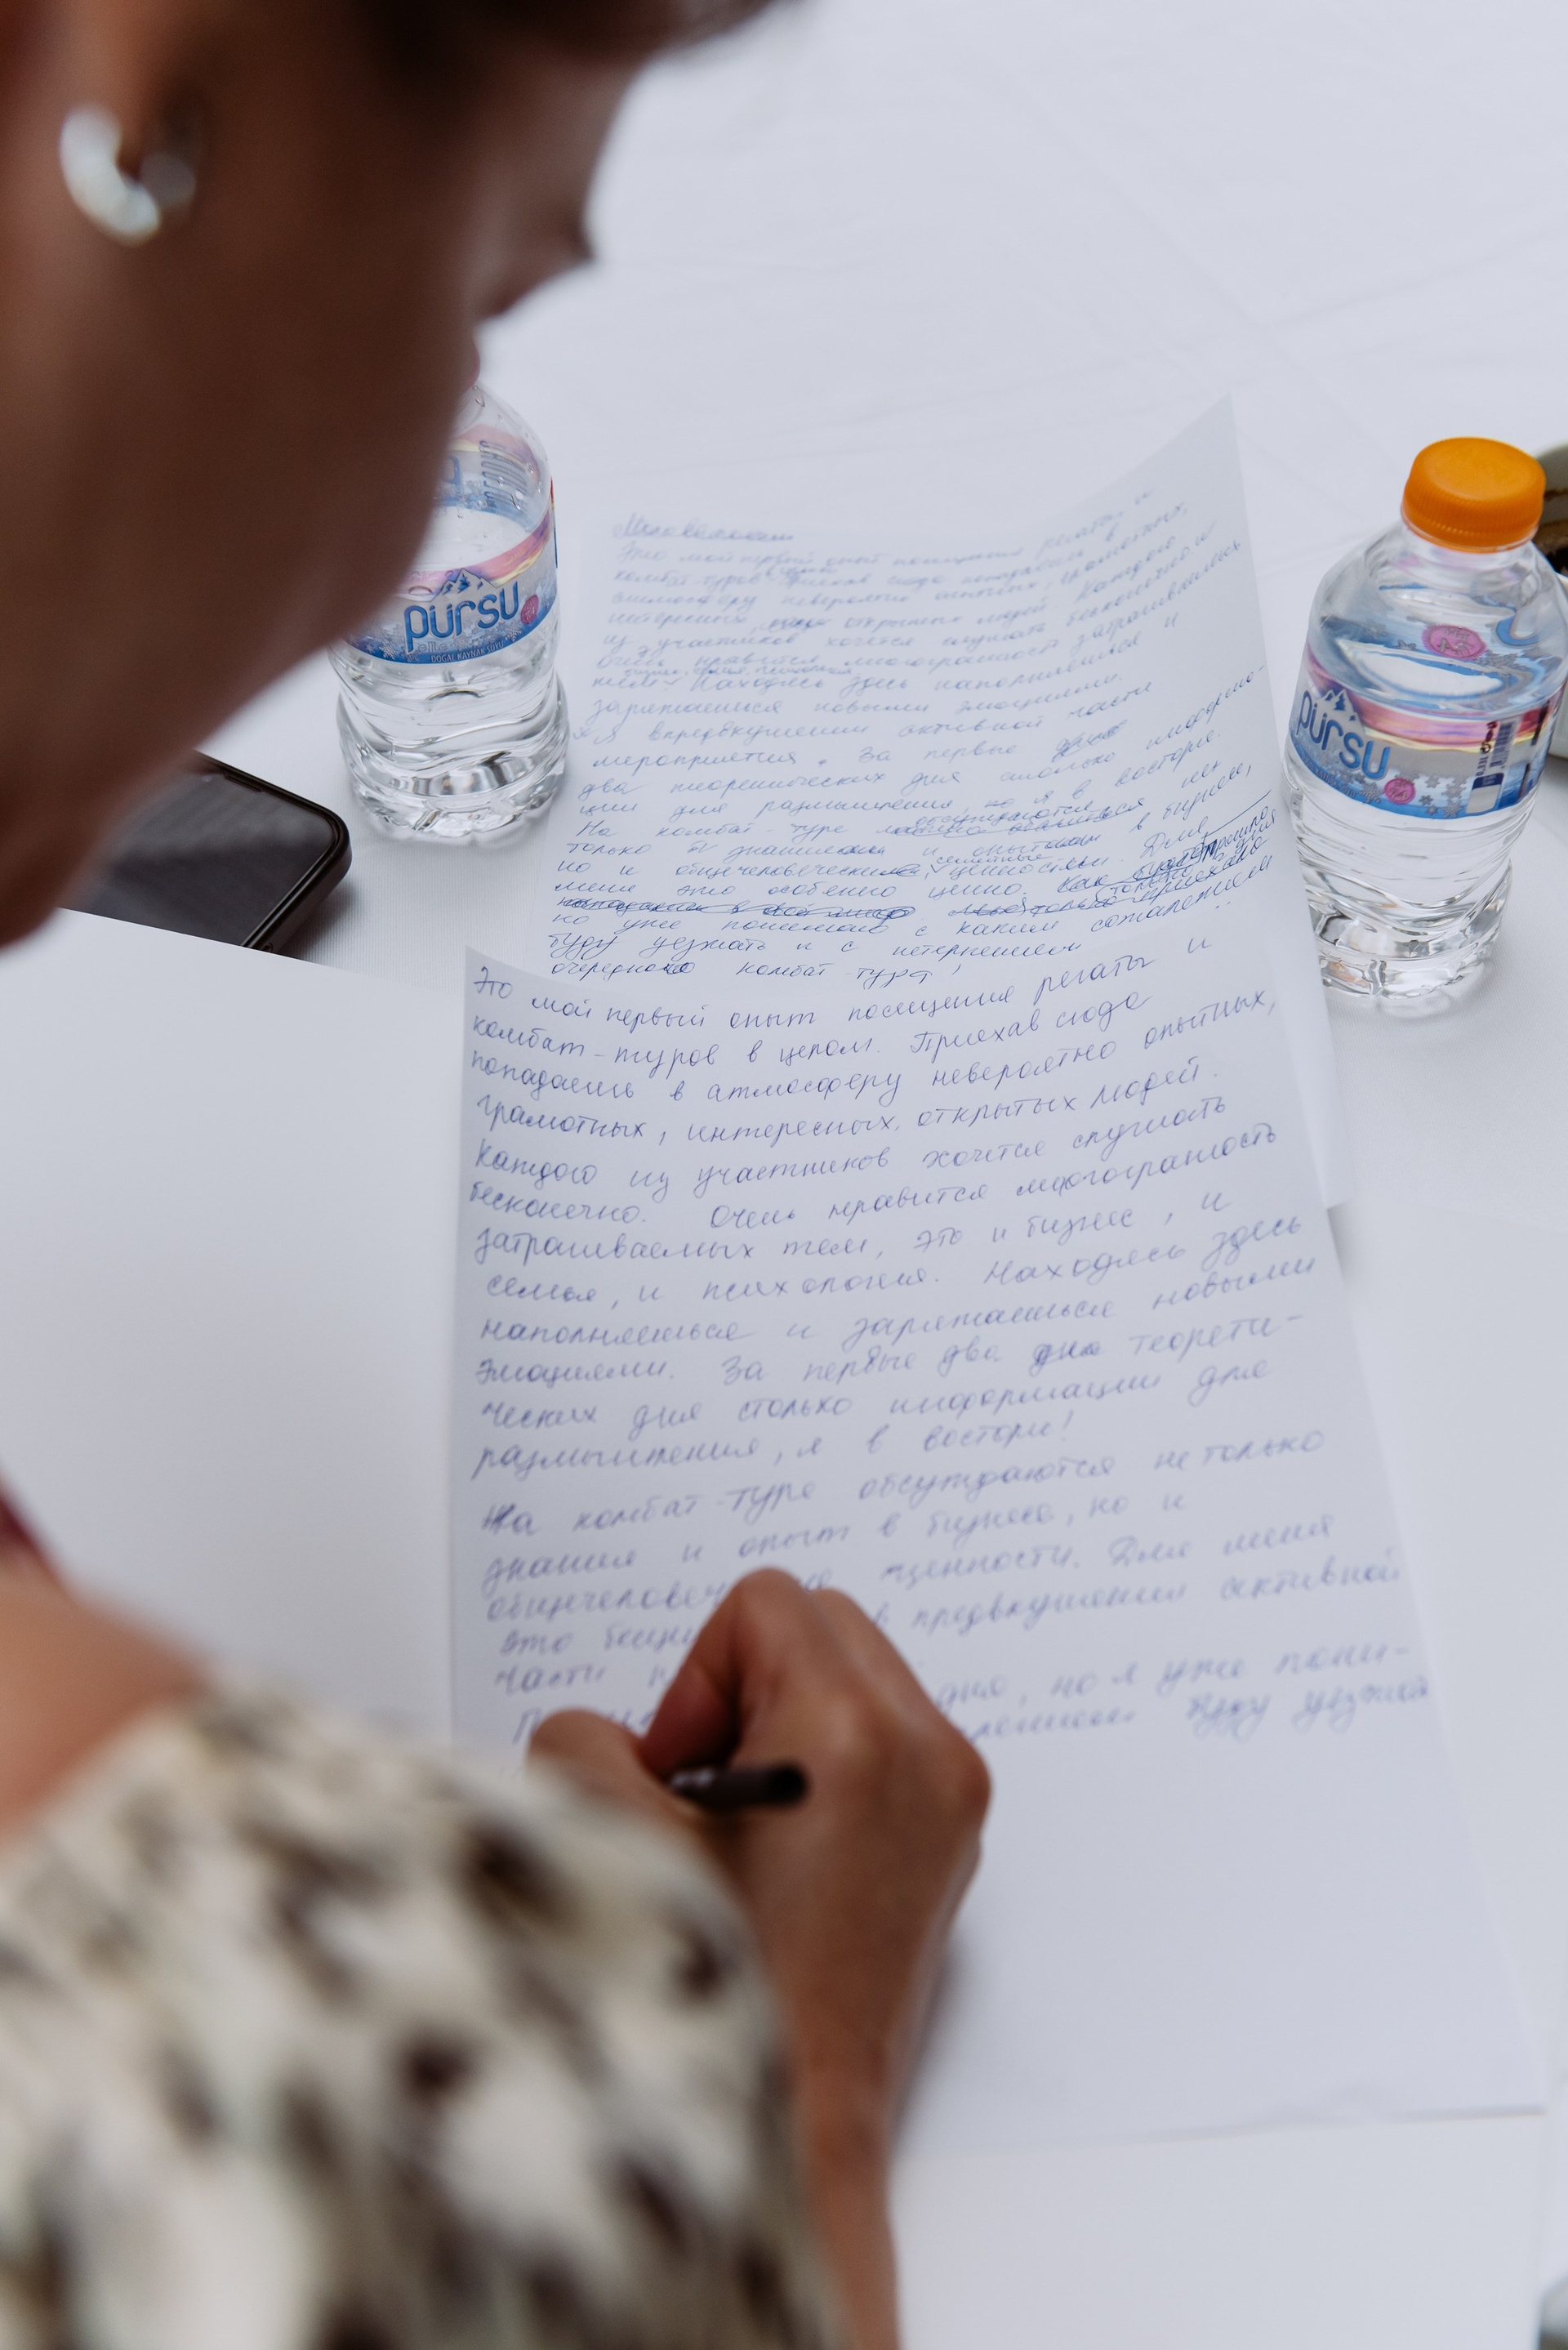 pürsu
DOĞAL KAYNAK SUYU
pürsu
Это мой первый опыт посещения регаты и
комбат-туров
атмосферу невероятно опытных, грамотных,
интересных открытых людей. Каждого
из участников хочется слушать бесконечно и
Очень нравится многогранность затрагиваемых
тем. Находясь здесь наполняешься и
заряжаешься новыми эмоциями.
Я в предвкушении активной части
мероприятия. За первые
два теоретических дня столько информа-
ции для размышления, но я в восторге.
На комбат-туре обсуждаются не
только знания и опыт в бизнесе,
но и общечеловеческие, семейные ценности. Для
меня это особенно ценно. Как будто прошло
только приехала
но уже понимаю с каким сожалением
буду уезжать и с нетерпением
очередного комбат-тура
Это мой первый опыт посещения регаты и
комбат-туров в целом. Приехав сюда
попадаешь в атмосферу невероятно опытных,
грамотных, интересных, открытых людей.
Каждого из участников хочется слушать
бесконечно. Очень нравится многогранность
затрагиваемых тем, это и бизнес, и
семья, и психология. Находясь здесь
наполняешься и заряжаешься новыми
эмоциями. За первые два дня теорети-
ческих дня столько информации для
размышления, я в восторге!
На комбат-туре обсуждаются не только
знания и опыт в бизнесе, но и
общечелове ценности. Для меня
это в предвкушении активной
части
дня, но я уже пони-
буду уезжать